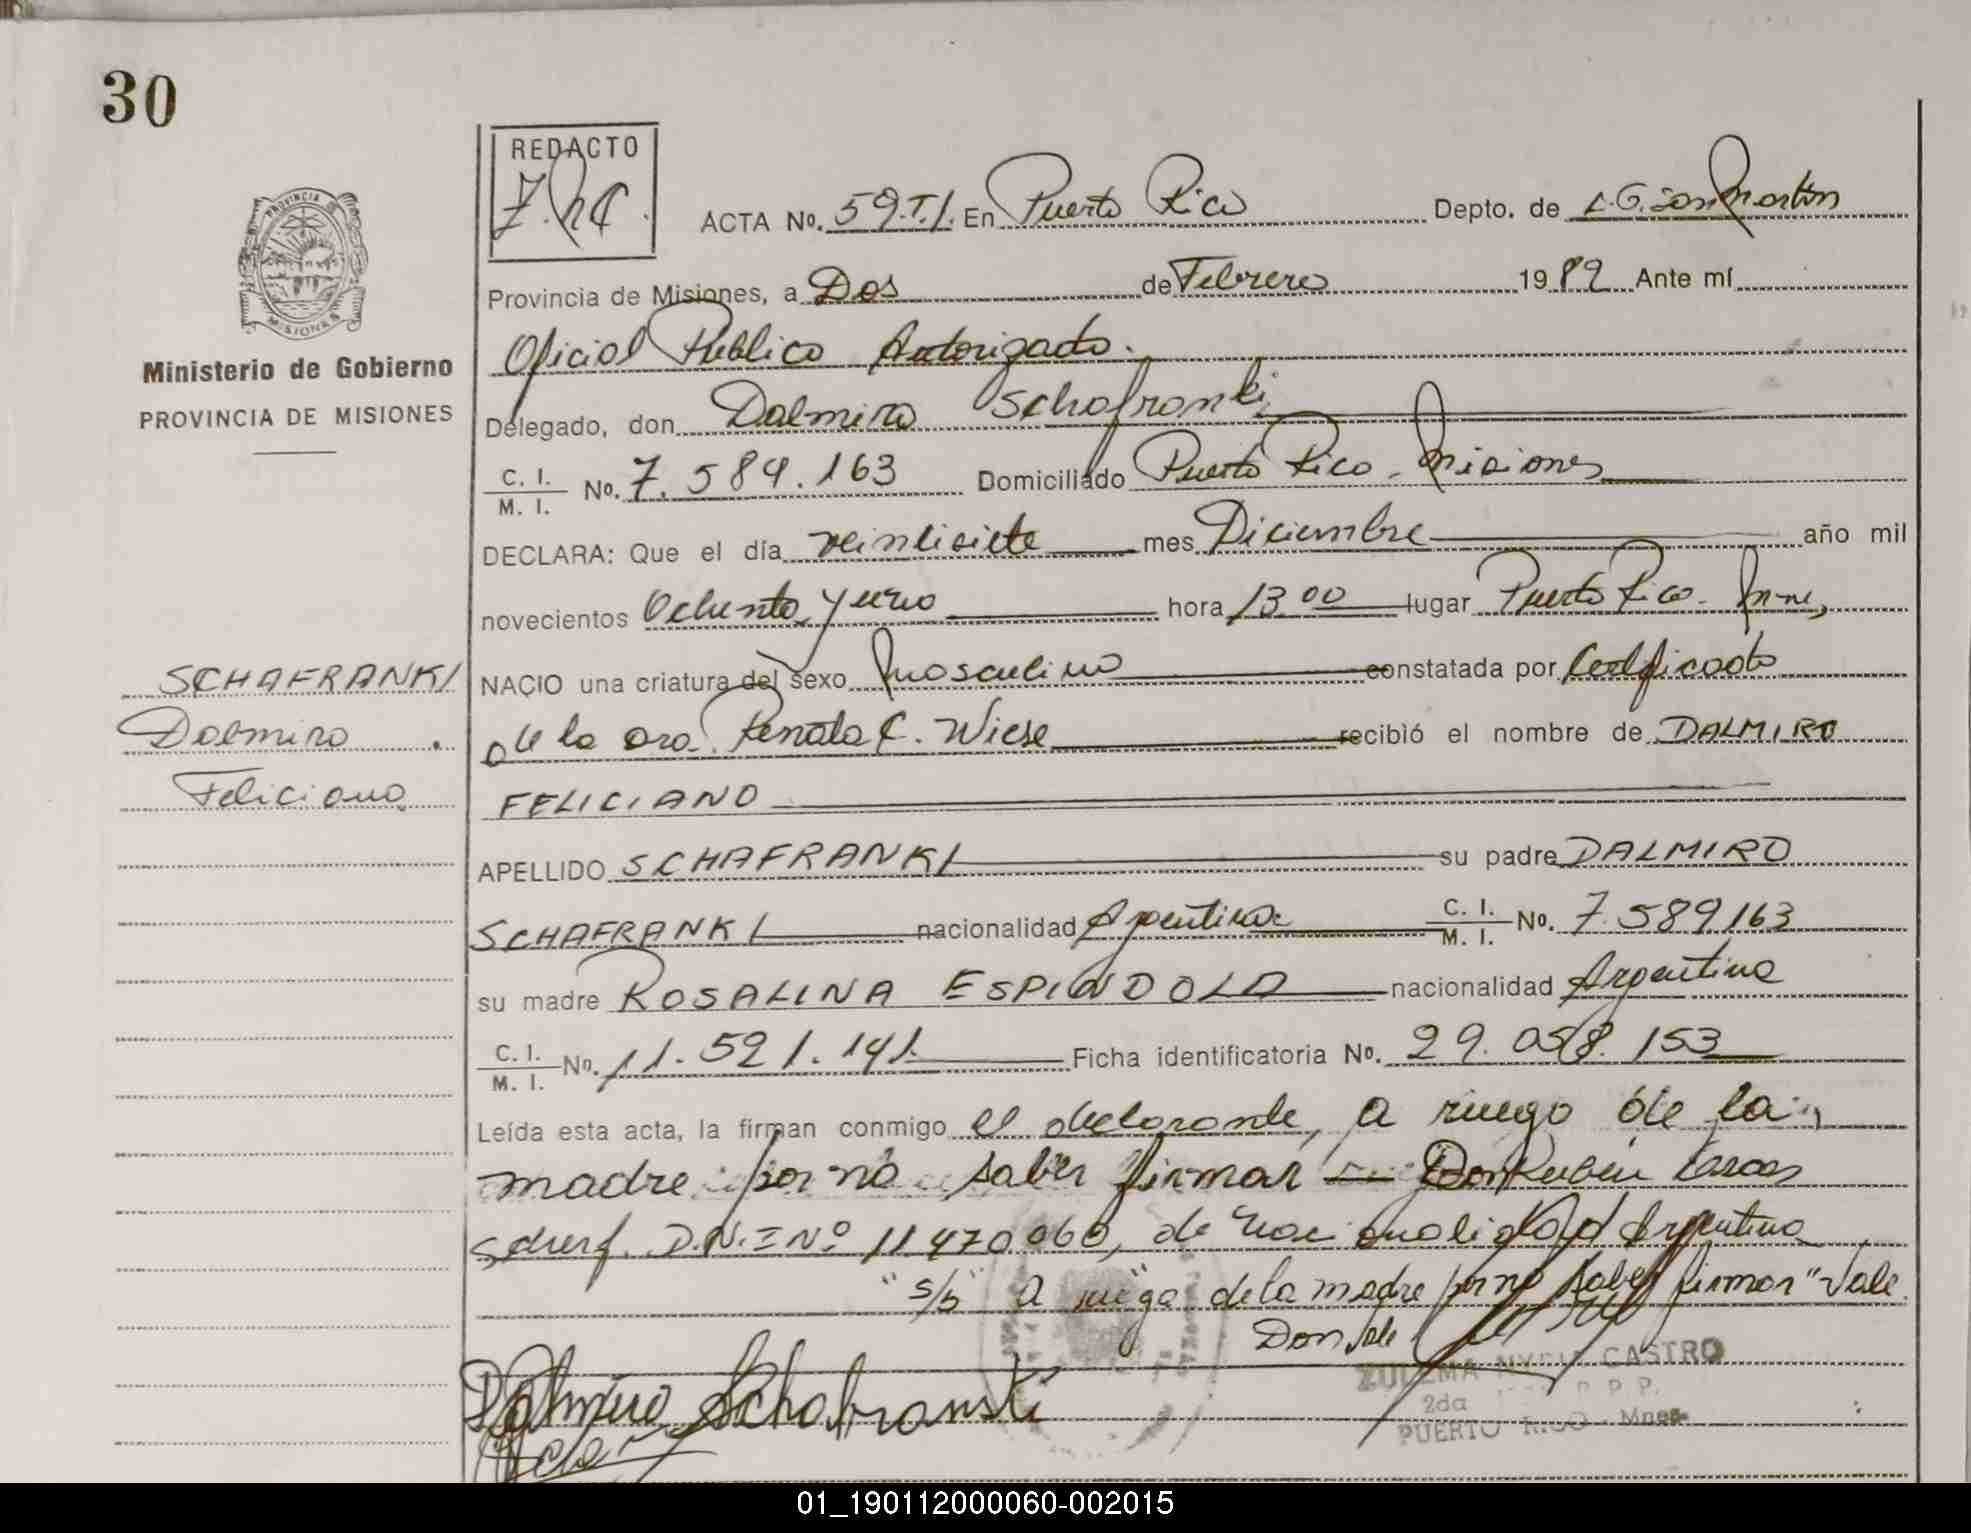 30
REDACTO
ACTA No. 59.T.I. En Puerto Rico Depto. de L.G. San Martín
PROVINCIA DE
MISIONES
Ministerio de Gobierno
PROVINCIA DE MISIONES
Provincia de Misiones, a Dos de Febrero 1982 Ante mí
Oficial Público Autorizado.
Delegado, don Dalmiro Schafranki
C. I. / M. I. No. 7.589.163 Domiciliado Puerto Rico - Misiones
DECLARA: Que el día veintisiete mes Diciembre año mil
novecientos Ochenta y uno hora 13.00 lugar Puerto Rico - Mnes,
SCHAFRANKI
Dalmiro
Feliciano
NACIO una criatura del sexo masculino constatada por Certificado
de la Dra. Renata C. Wiese recibió el nombre de DALMIRO
FELICIANO
APELLIDO SCHAFRANKI su padre DALMIRO
SCHAFRANKI nacionalidad Argentina C. I. / M. I. No. 7.589163
su madre ROSALINA ESPINDOLA nacionalidad Argentina
C. I. / M. I. No. 11.521.141. Ficha identificatoria No. 29.058.153
Leída esta acta, la firman conmigo el declarante, a ruego de la
madre por no saber firmar Don Rubén
D.N.I Nº 11.470.060, de nacionalidad Argentina
"s/b" a ruego de la madre por no saber firmar" Vale.
Don vale
Dalmiro Schafranski
ZULEMA CASTRO
2da
PUERTO RICO - Mnes.
01_190112000060-002015